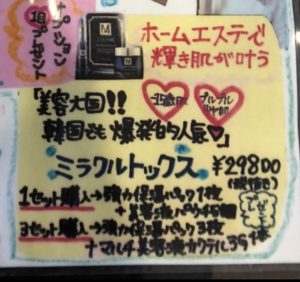 プション
10プレゼント
M
ホームエステで
輝き肌が叶う
「美容大国!!
韓国でも爆発的人気♡」
-15歳肌
プルプル
ミラクルトックス ¥29800
(税抜き)
1セット購入→強力保湿パック1枚
+美容液パウチ
3セット購入→強力保湿パック3枚
+マルチ美容液カクテル35